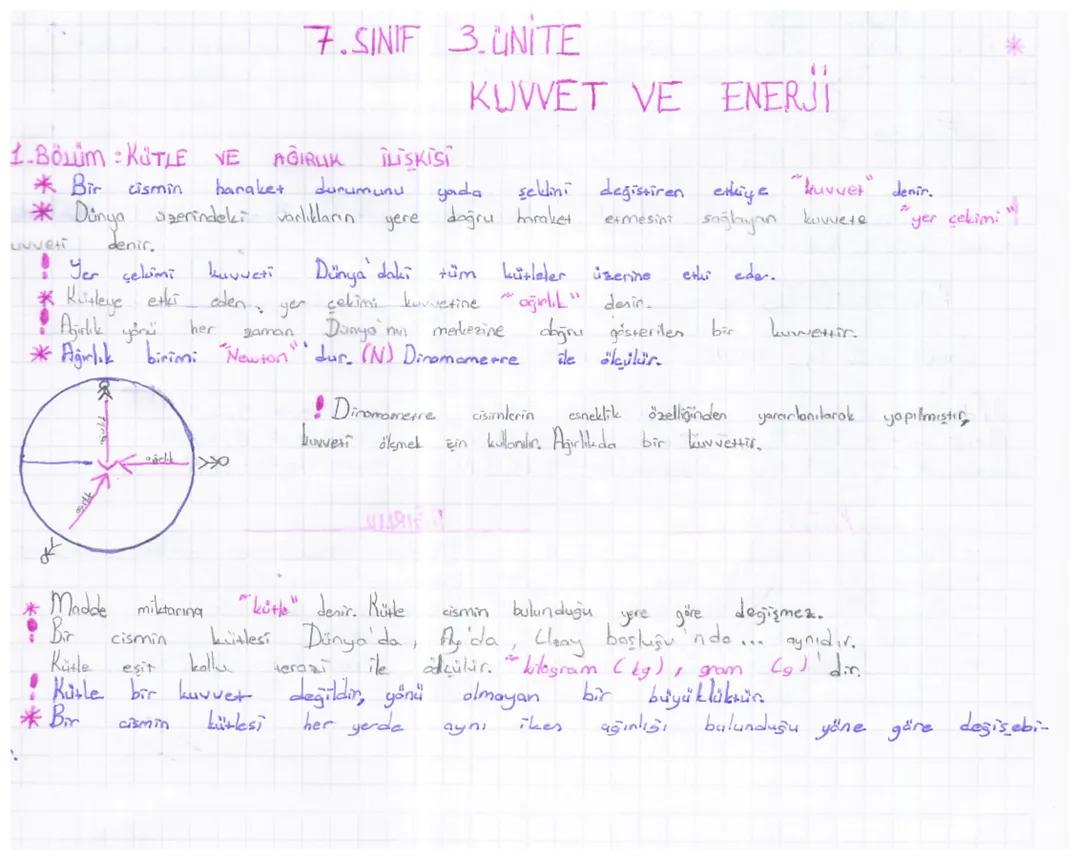 7.SINIF 3.ÜNİTE
KUVVET VE ENERJİ
1.Bölüm : KÜTLE VE AĞIRLIK İLİŞKİSİ
* Bir cismin haraket durumunu yada şeklini değiştiren etkiye "kuvvet" denir.
* Dünya üzerindeki varlıkların yere doğru haraket etmesini sağlayan kuvvete "yer çekimi"
uvveti denir.
! Yer çekimi kuvveti Dünya'daki tüm kütleler üzerine etki eder.
* Kütleye etki eden yer çekimi kuvvetine "ağırlık" denir.
! Ağırlık yönü her zaman Dünya'nın merkezine doğru gösterilen bir kuvvettir.
* Ağırlık birimi "Newton"'dur. (N) Dinamometre ile ölçülür.
ağırlık
ağırlık
ağırlık
! Dinamometre cisimlerin esneklik özelliğinden yararlanılarak yapılmıştır,
kuvveti ölçmek için kullanılır. Ağırlıkda bir kuvvettir.
* Madde miktarına "kütle" denir. Kütle cismin bulunduğu yere göre değişmez.
! Bir cismin kütlesi Dünya'da, Ay'da, Uzay boşluğu'nda... aynıdır.
Kütle eşit kollu terazi ile ölçülür. "kilogram (kg), gram (g)'dır.
! Kütle bir kuvvet değildir, yönü olmayan bir büyüklüktür.
* Bir cismin kütlesi her yerde aynı iken ağırlığı bulunduğu yöne göre değişebi-